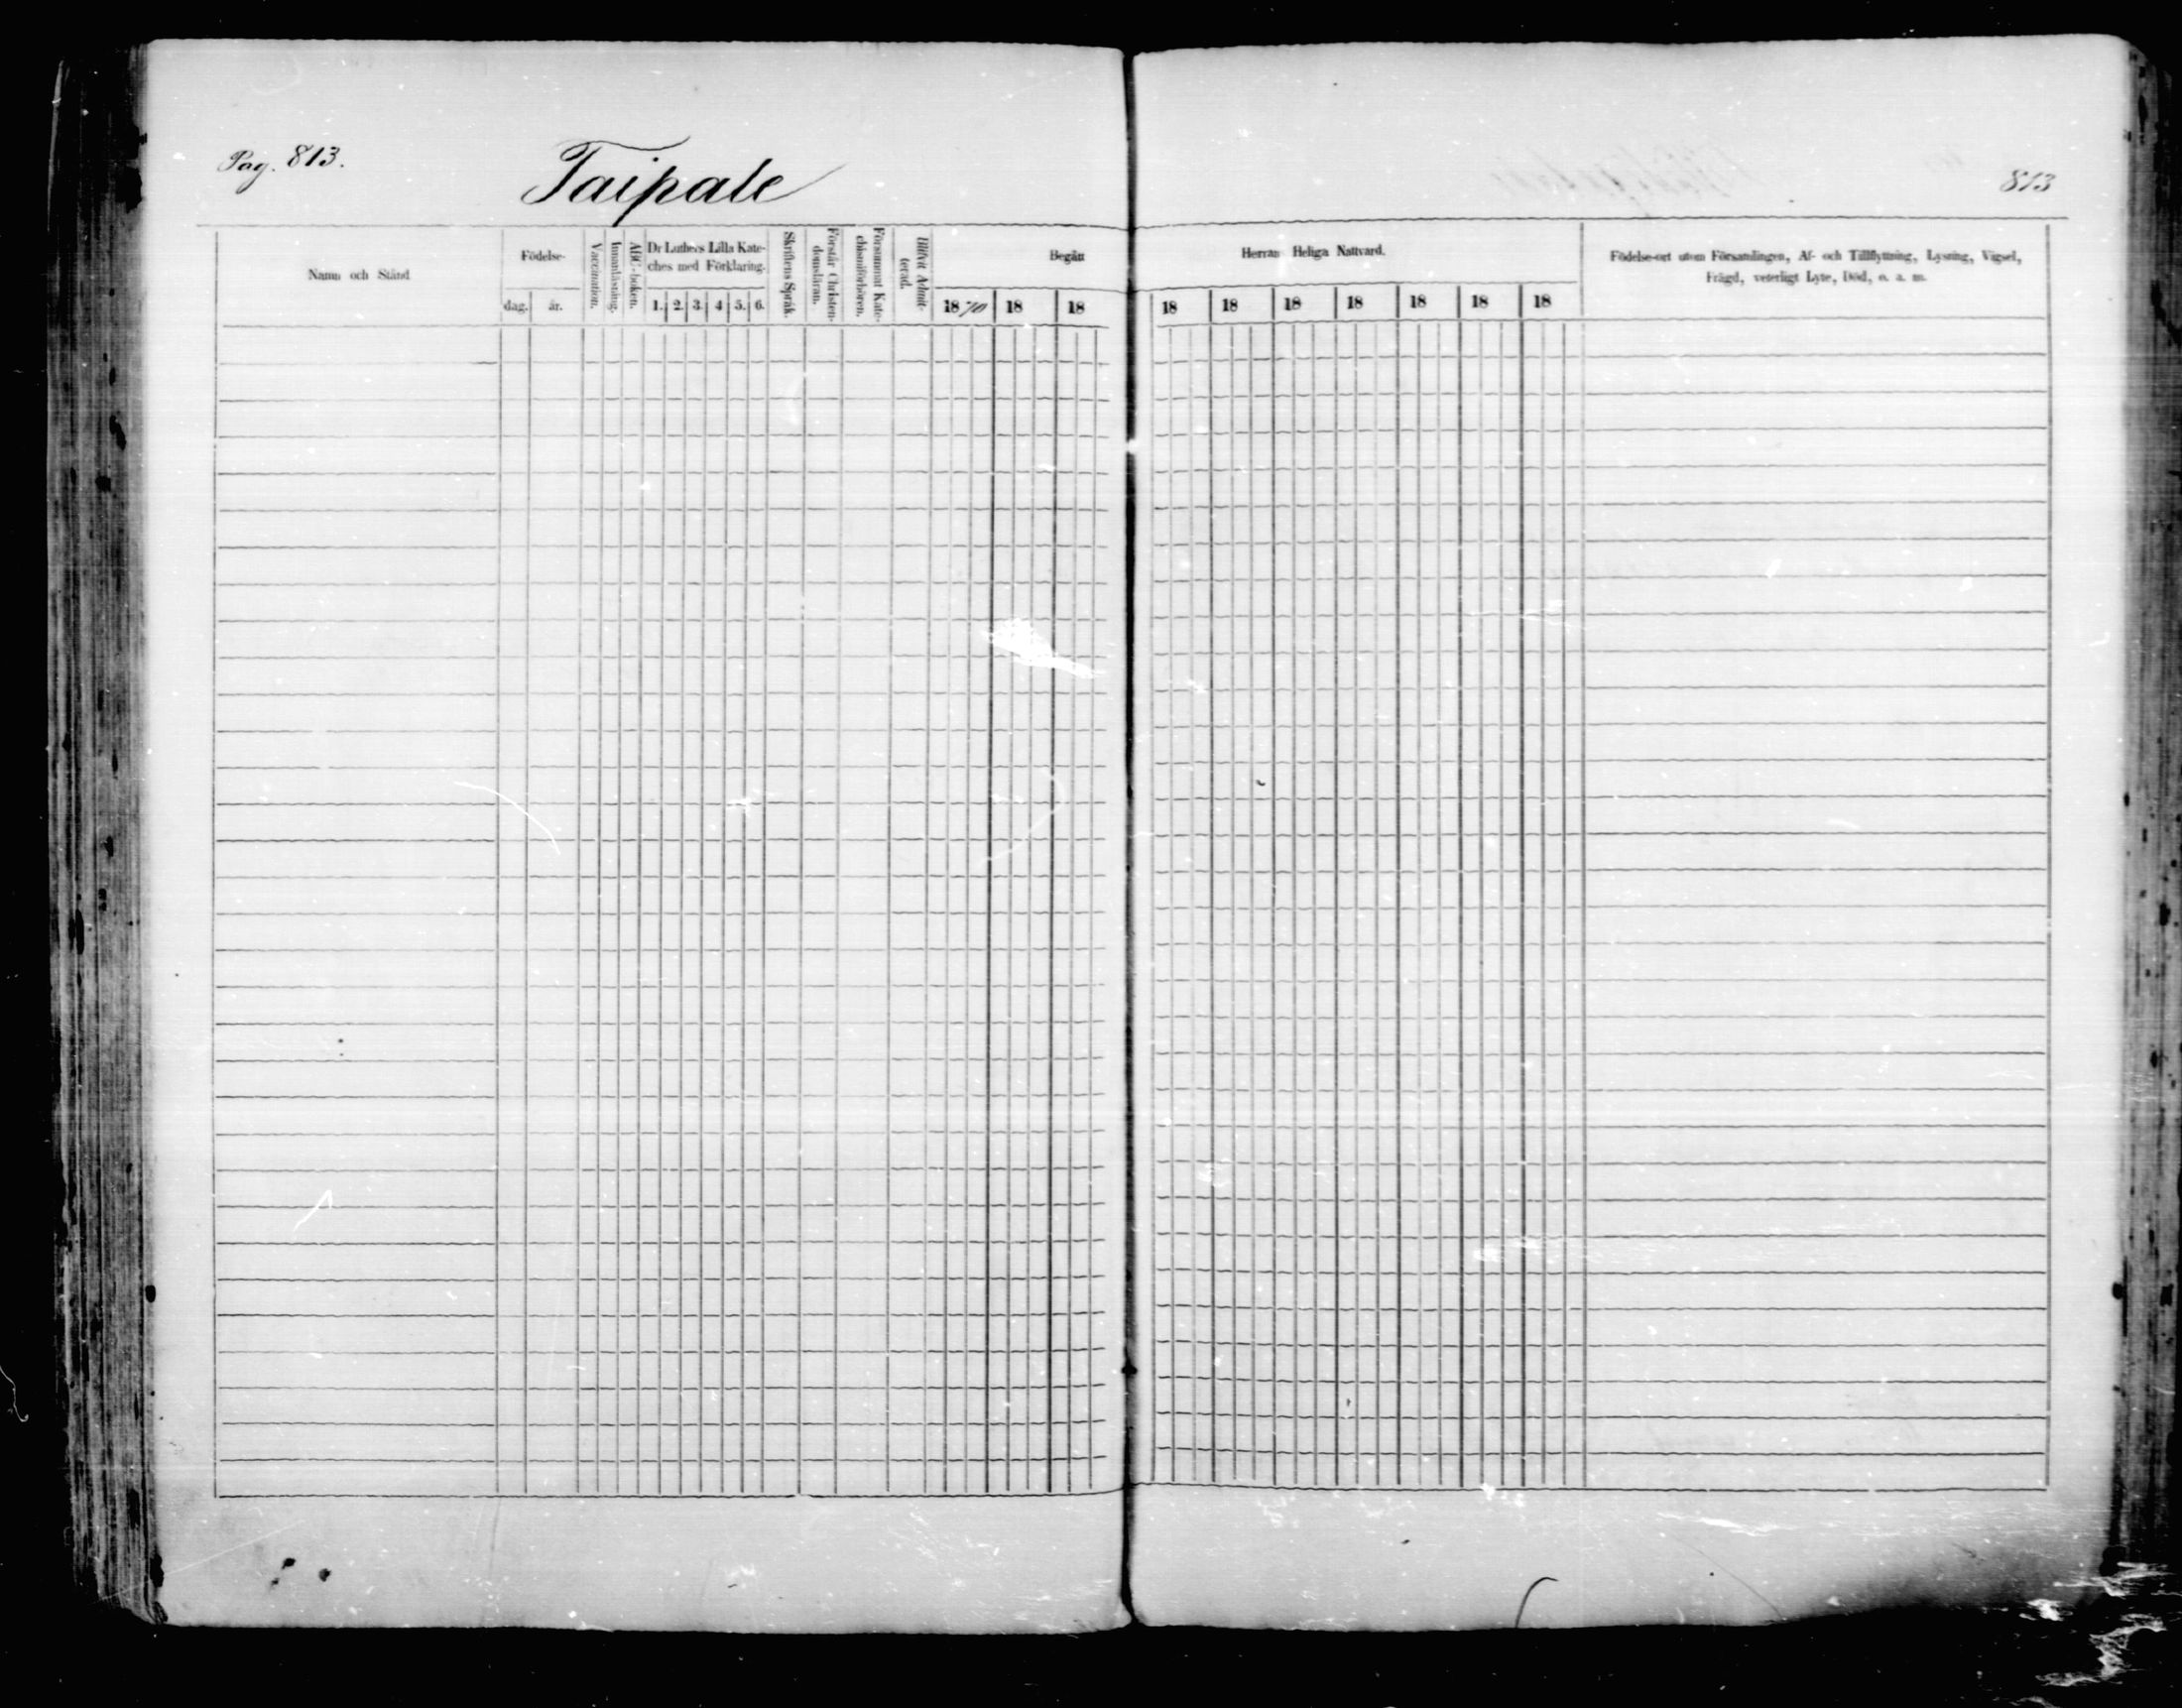 Pag. 813.
Taipale
813
Namn och Stånd
Födelse-
dag. år.
Vaccination.
Innanläsning.
ABC-boken.
Dr Luthers Lilla Kate-
ches med Förklaring.
1. 2. 3. 4 5. 6.
Skriftens Språk.
Förstår Christen-
domsläran.
Försummat Kate-
chismiförhören.
Blifvit Admit-
terad.
Begått Herrans Heliga Nattvard.
1870 18 18 18 18 18 18 18 18 18
Födelse-ort utom Församlingen, Af- och Tillflyttning, Lysning, Vigsel,
Frägd, veterligt Lyte, Död, o. a. m.